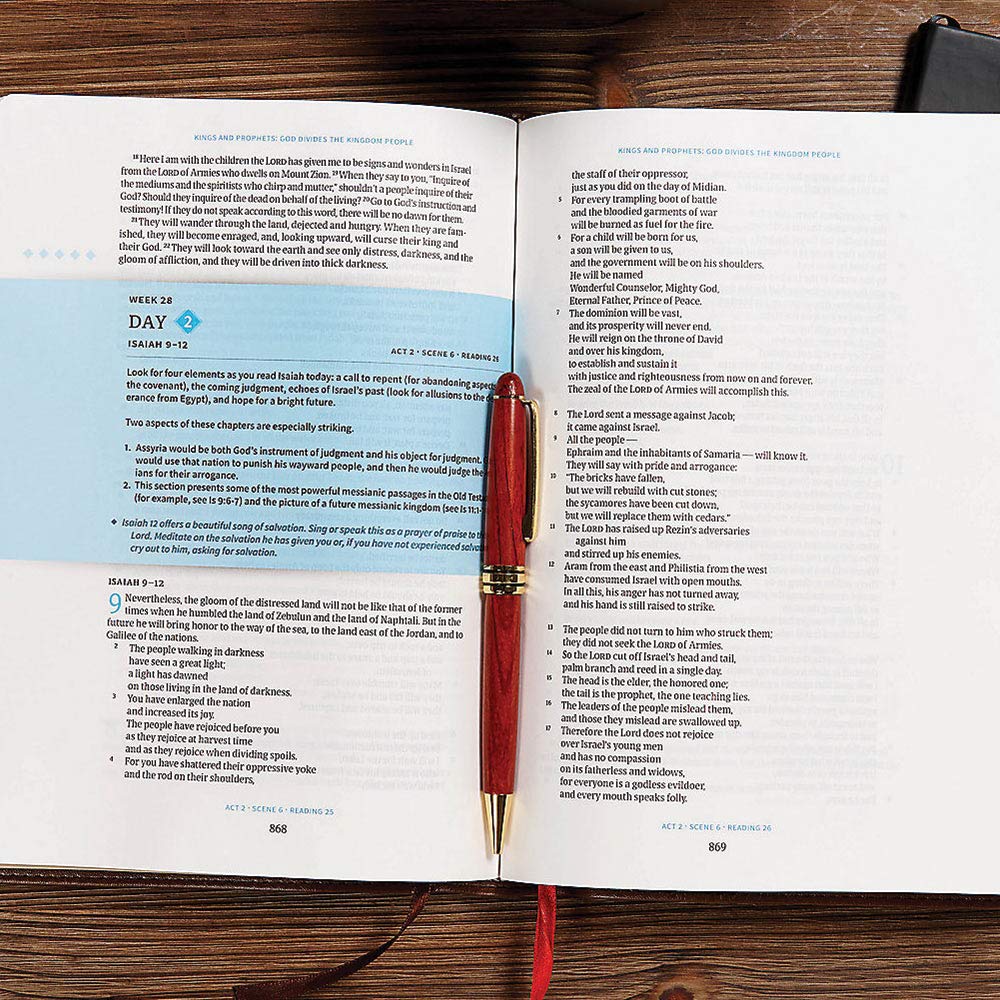 KINGS AND PROPHETS: GOD DIVIDES THE KINGDOM PEOPLE
18 Here I am with the children the LORD has given me to be signs and wonders in Israel
from the LORD of Armies who dwells on Mount Zion. 19 When they say to you, "Inquire of
the mediums and the spiritists who chirp and mutter," shouldn't a people inquire of their
God? Should they inquire of the dead on behalf of the living? 20 Go to God's instruction and
testimony! If they do not speak according to this word, there will be no dawn for them.
21 They will wander through the land, dejected and hungry. When they are fam-
ished, they will become enraged, and, looking upward, will curse their king and
their God. 22 They will look toward the earth and see only distress, darkness, and the
gloom of affliction, and they will be driven into thick darkness.
WEEK 28
DAY 2
ISAIAH 9–12
ACT 2 · SCENE 6 · READING 26
Look for four elements as you read Isaiah today: a call to repent (for abandoning
the covenant), the coming judgment, echoes of Israel's past (look for allusions to the
erance from Egypt), and hope for a bright future.
Two aspects of these chapters are especially striking.
1. Assyria would be both God's instrument of judgment and his object for judgment.
would use that nation to punish his wayward people, and then he would judge the
ians for their arrogance.
2. This section presents some of the most powerful messianic passages in the Old
(for example, see Is 9:6-7) and the picture of a future messianic kingdom (see Is 11:1-
◆ Isaiah 12 offers a beautiful song of salvation. Sing or speak this as a prayer of praise to
Lord. Meditate on the salvation he has given you or, if you have not experienced
cry out to him, asking for salvation.
ISAIAH 9–12
9 Nevertheless, the gloom of the distressed land will not be like that of the former
times when he humbled the land of Zebulun and the land of Naphtali. But in the
future he will bring honor to the way of the sea, to the land east of the Jordan, and to
Galilee of the nations.
2 The people walking in darkness
have seen a great light;
a light has dawned
on those living in the land of darkness.
3 You have enlarged the nation
and increased its joy.
The people have rejoiced before you
as they rejoice at harvest time
and as they rejoice when dividing spoils.
4 For you have shattered their oppressive yoke
and the rod on their shoulders,
ACT 2 · SCENE 6 · READING 25
868
KINGS AND PROPHETS: GOD DIVIDES THE KINGDOM PEOPLE
the staff of their oppressor,
just as you did on the day of Midian.
5 For every trampling boot of battle
and the bloodied garments of war
will be burned as fuel for the fire.
6 For a child will be born for us,
a son will be given to us,
and the government will be on his shoulders.
He will be named
Wonderful Counselor, Mighty God,
Eternal Father, Prince of Peace.
7 The dominion will be vast,
and its prosperity will never end.
He will reign on the throne of David
and over his kingdom,
to establish and sustain it
with justice and righteousness from now on and forever.
The zeal of the LORD of Armies will accomplish this.
8 The Lord sent a message against Jacob;
it came against Israel.
9 All the people —
Ephraim and the inhabitants of Samaria — will know it.
They will say with pride and arrogance:
10 "The bricks have fallen,
but we will rebuild with cut stones;
the sycamores have been cut down,
but we will replace them with cedars."
11 The LORD has raised up Rezin's adversaries
against him
and stirred up his enemies.
12 Aram from the east and Philistia from the west
have consumed Israel with open mouths.
In all this, his anger has not turned away,
and his hand is still raised to strike.
13 The people did not turn to him who struck them;
they did not seek the LORD of Armies.
14 So the LORD cut off Israel's head and tail,
palm branch and reed in a single day.
15 The head is the elder, the honored one;
the tail is the prophet, the one teaching lies.
16 The leaders of the people mislead them,
and those they mislead are swallowed up.
17 Therefore the Lord does not rejoice
over Israel's young men
and has no compassion
on its fatherless and widows,
for everyone is a godless evildoer,
and every mouth speaks folly.
ACT 2 · SCENE 6 · READING 26
869